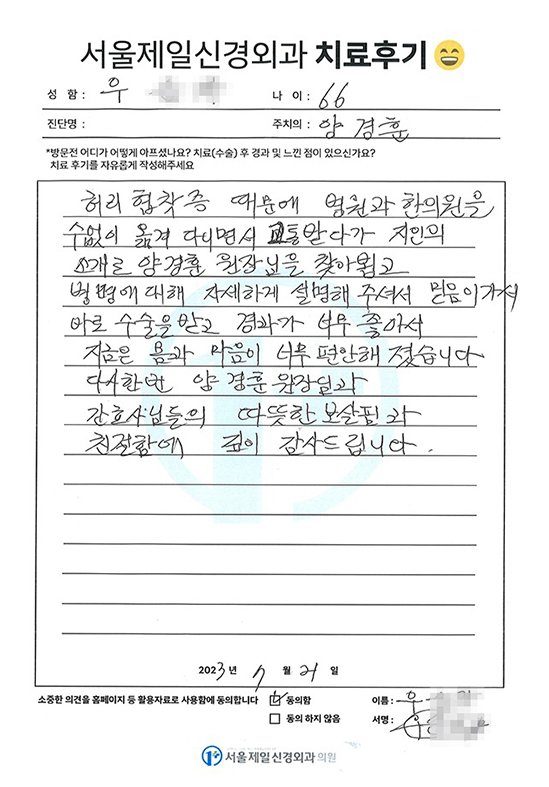 서울제일신경외과 치료후기
성 함 : 우
나 이 : 66
진단명 :
주치의 : 양 경훈
*방문전 어디가 어떻게 아프셨나요? 치료(수술) 후 경과 및 느낀 점이 있으신가요?
치료 후기를 자유롭게 작성해주세요
허리 협착증 때문에 병원과 한의원을
수없이 옮겨 다니면서 고통받다가 지인의
소개로 양경훈 원장님을 찾아뵙고
병명에 대해 자세하게 설명해 주셔서 믿음이가서
바로 수술을 받고 경과가 너무 좋아서
지금은 몸과 마음이 너무 편안해 졌습니다
다시한번 양경훈 원장님과
간호사님들의 따뜻한 보살핌과
친절함에 깊이 감사드립니다.
2023년 7 월 21 일
소중한 의견을 홈페이지 등 활용자료로 사용함에 동의합니다
동의함
동의 하지 않음
이름 : 우
서명 :
서울제일신경외과 의원